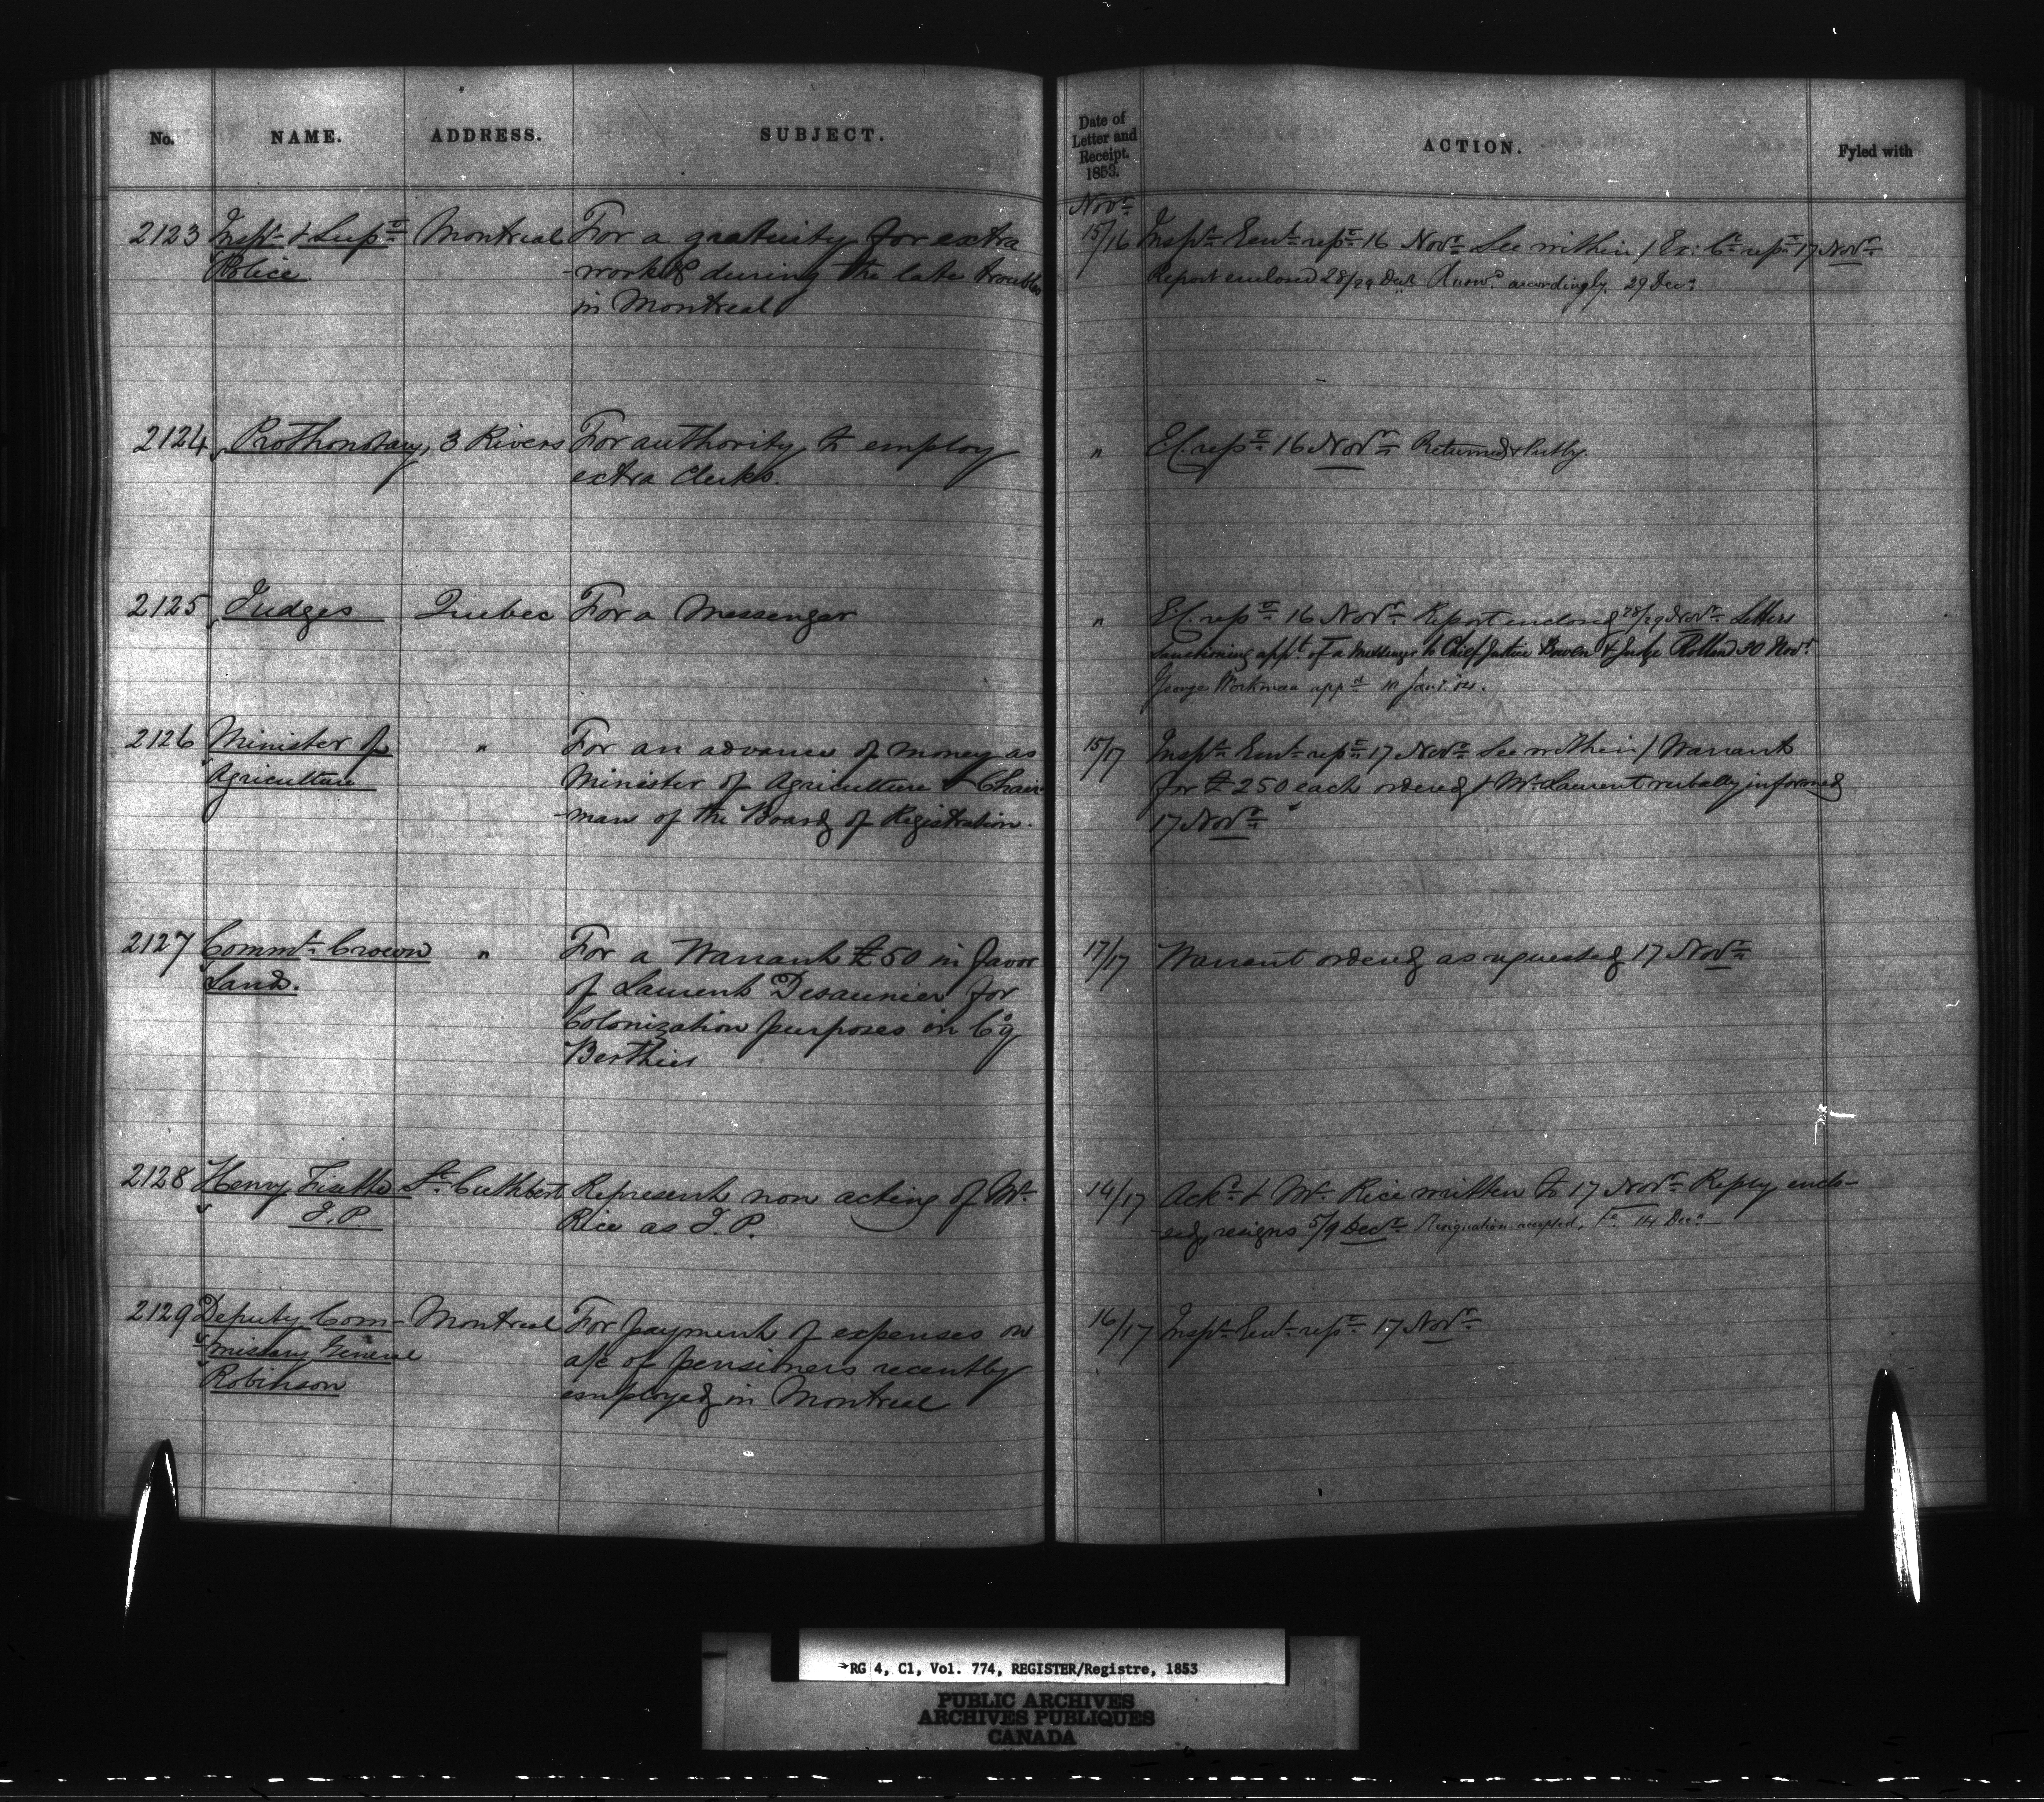 No. NAME. ADDRESS. SUBJECT.
2123 Inspr & Supt Montreal For a gratuity for extra
Police work &c during the late troubles
in Montreal
2124 Prothonotary, 3 Rivers For authority to employ
extra Clerks.
2125 Judges Quebec For a Messenger
2126 Minister of " For an advance of money as
Agriculture Minister of Agriculture & Chair-
-man of the Board of Registration.
2127 Commr Crown " For a Warrant £50 in favor
Lands. of Laurent Desaunier for
Colonization purposes in Coy
Berthier
2128 Henry Fisette St Cuthbert Represents non acting of Mr
J.P. Rice as J.P.
2129 Deputy Com- Montreal For payment of expenses on
missary General a/c of pensioners recently
Robinson employed in Montreal
Date of
Letter and
Receipt.
1853.
ACTION. Fyled with
Novr
15/16 Inspr Genl repd 16 Novr See within / Ex: Cl repd 17 Novr
Report enclosed 28/29 Answd accordingly. 29 Decr
" E.C. repd 16 Novr Returned
" E.C. repd 16 Novr Report enclosed 28/29 Novr Letters
sanctioning appt of a Messenger to Chief Justice Bowen & Judge Rolland 30 Novr
George Workman appd 10 Jany. 54.
15/17 Inspr Genl repd 17 Novr See within / Warrants
for £250 each ordered & Mr Laurent verbally informed
17 Novr
17/17 Warrant ordered as requested 17 Novr
14/17 Ackd & Mr Rice written to 17 Novr Reply enclo-
-sed, resigns 5/9 Decr Resignation accepted, 14 Decr
16/17 Inspr Genl repd 17 Novr
RG 4, C1, Vol. 774, REGISTER/Registre, 1853
PUBLIC ARCHIVES
ARCHIVES PUBLIQUES
CANADA